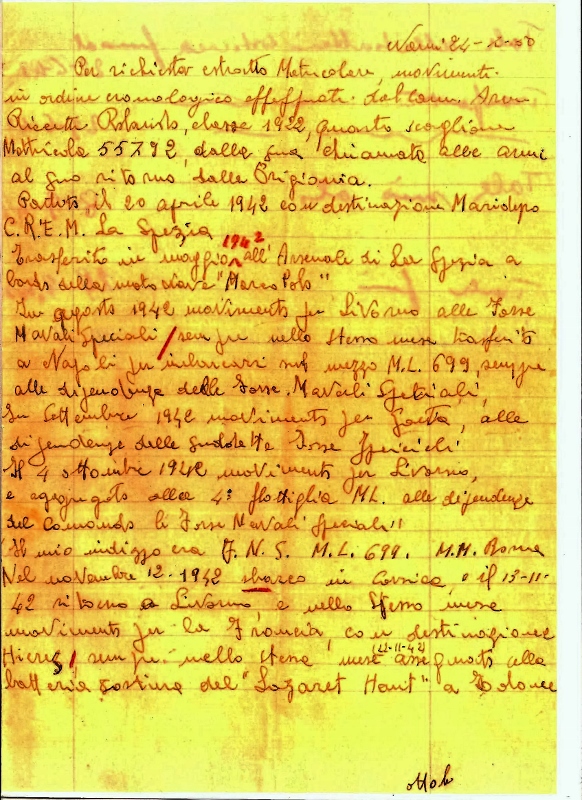 Narni 24-2-00
Per richiesta estratto Matricolare, movimenti
in ordine cronologico effettuati dal
Ricetti Rolando, classe 1922, quarto scaglione
Matricola 55792, dalla sua chiamata alle armi
al suo ritorno dalla Prigionia.
Partito il 20 aprile 1942 con destinazione Maridepo
C.R.E.M. La Spezia
1942
Trasferito in maggio all'Arsenale di La Spezia a
bordo della motonave "Marco Polo"
In agosto 1942 movimento per Livorno alle Forse
Navali Speciali / sempre nello stesso mese trasferito
a Napoli per imbarcarsi sul mezzo M.L. 699 sempre
alle dipendenze delle Forse Navali Speciali,
In Settembre 1942 movimento per Gaeta, alle
dipendenze delle suddette Forse Speciali
Il 4 ottobre 1942 movimento per Livorno,
e aggregato alla 4ª flottiglia ML. alle dipendenze
del Comando "Forse Navali Speciali"
Il mio indizzo era F.N.S. M.L. 699. M.M. Roma
Nel novembre 12-1942 sbarco in Corsica, il 13-11-
42 ritorno a Livorno, e nello stesso mese
movimento per la Francia, con destinazione
(22-11-42)
Hieres, sempre nello stesso mese assegnato alla
batteria costiera del "Lazaret Haut" a Tolone